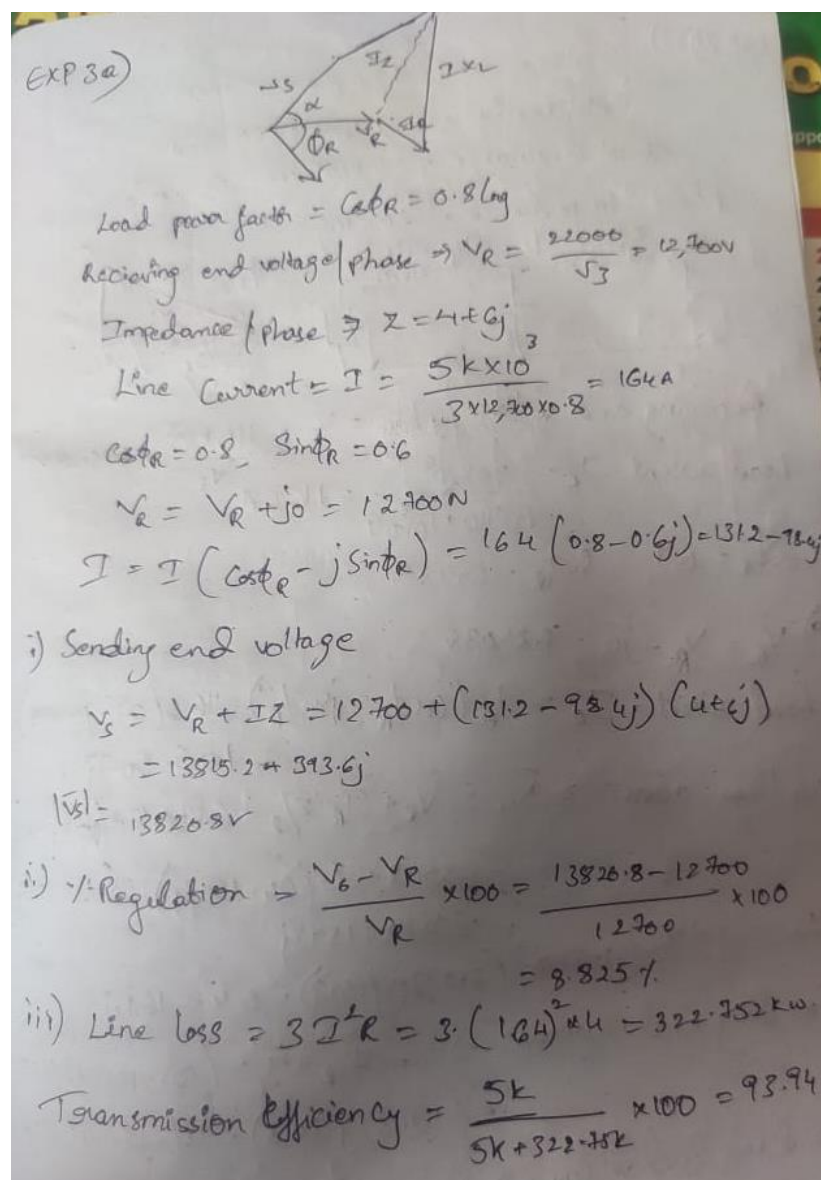 EXP 3a)
Vs α IZ IXL
ΦR VR IR
I
Load power factor = CosΦR = 0.8 lag
Recieving end voltage/phase ⇒ VR = 22000/√3 = 12,700V
Impedance/phase ⇒ Z = 4+6j
Line Current = I = 5k×10³/3×12,700×0.8 = 164A
CosΦR = 0.8, SinΦR = 0.6
VR = VR + j0 = 12700V
I = I (CosΦR - j SinΦR) = 164 (0.8-0.6j) = 131.2-98.4j
i) Sending end voltage
Vs = VR + IZ = 12700 + (131.2 - 98.4j) (4+6j)
= 13815.2 + 393.6j
|V̅s| = 13820.8V
ii) % Regulation = Vs - VR/VR ×100 = 13820.8 - 12700/12700 ×100
= 8.825%
iii) Line loss = 3I²R = 3.(164)²×4 = 322.752kw.
Transmission Efficiency = 5k/5k+322.75k ×100 = 93.94